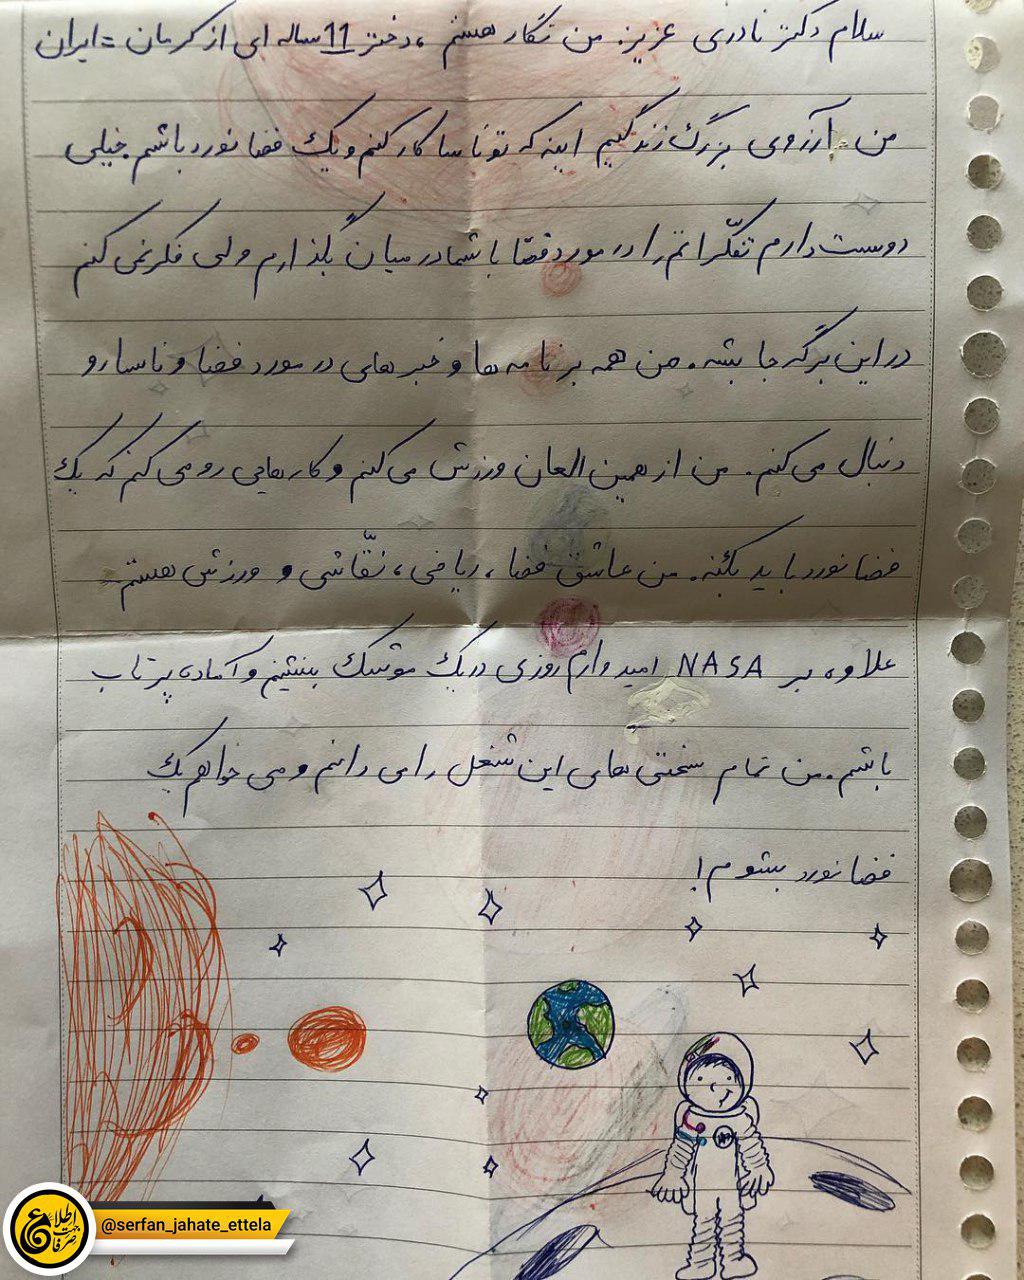 سلام دکتر نادری عزیز. من نگار هستم، دختر 11 ساله ای از کرمان =ایران
من آرزوی بزرگ زندگیم اینه که تو ناسا کار کنم و یک فضا نورد باشم خیلی
دوست دارم تفکّراتم را در مورد فضا با شما در میان بگذارم ولی فکر نمی کنم
در این برگه جا بشه. من همه برنامه ها و خبر های در مورد فضا و ناسا رو
دنبال می کنم. من از همین العان ورزش می کنم و کارهایی رو می کنم که یک
فضا نورد باید بکنه. من عاشق فضا، ریاضی، نقّاشی و ورزش هستم
علاوه بر NASA امید وارم روزی در یک موشک بنشینم و آماده پرتاب
باشم. من تمام سختی های این شغل را می دانم و می خواهم یک
فضا نورد بشوم!
اطلاع
جهت
صرفا
@serfan_jahate_ettela